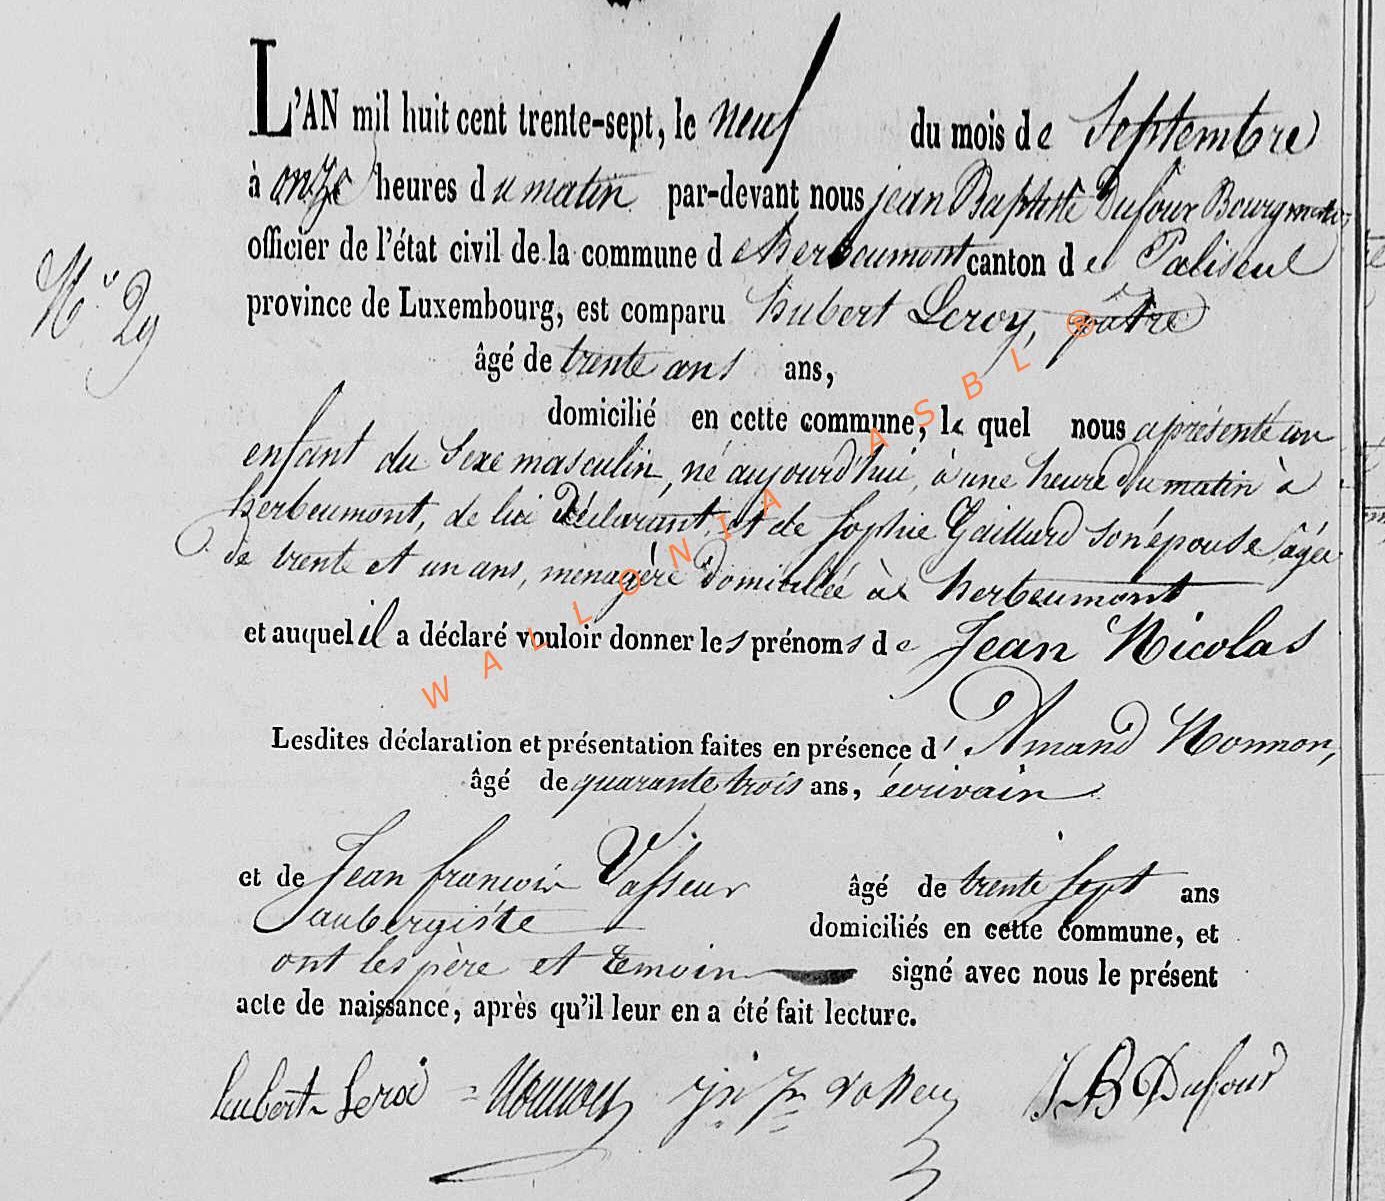 L'AN mil huit cent trente-sept, le neuf du mois de Septembre
à onze heures du matin par-devant nous jean Baptiste Dufour Bourgmestre
officier de l'état civil de la commune d e herbeumont canton de Paliseul
N.o 29
province de Luxembourg, est comparu hubert Leroy, pâtre
âgé de trente ans ans,
domicilié en cette commune, le quel nous a présenté un
enfant du Sexe masculin, né aujourd'hui, à une heure du matin à
herbeumont, de lui Déclarant, et de Sophie Gaillard son épouse âgée
de trente et un ans, ménagère domiciliée à herbeumont
et auquel il a déclaré vouloir donner les prénoms de Jean Nicolas
Lesdites déclaration et présentation faites en présence d'Amand Nonnon,
âgé de quarante trois ans, écrivain
et de Jean françois Vasseur âgé de trente sept ans
aubergiste domiciliés en cette commune, et
ont les père et temoin signé avec nous le présent
acte de naissance, après qu'il leur en a été fait lecture.
hubert Leroi = Nonnon jn fr vasseur J B Dufour
WALLONIA ASBL ®